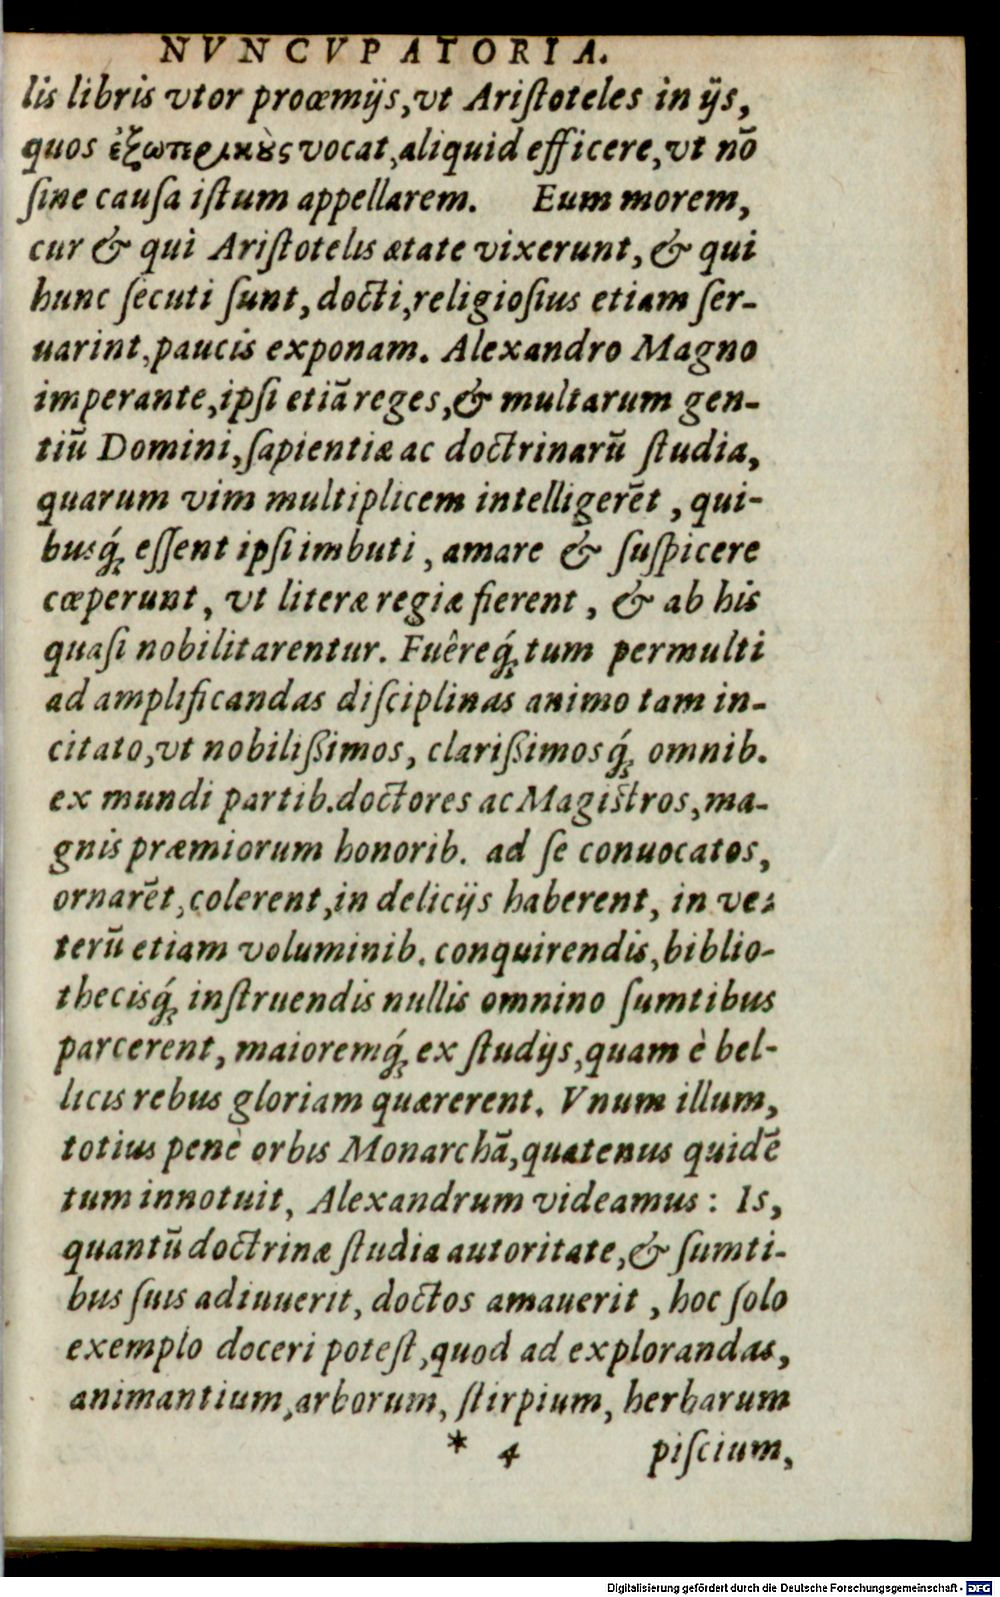 NVNCVPATORIA.
lis libris vtor proœmijs, vt Ariſtoteles in ijs,
quos ἐξωτερικȣ̀ς vocat, aliquid efficere, vt nō
ſine cauſa iſtum appellarem. Eum morem,
cur & qui Ariſtotelis ætate vixerunt, & qui
hunc ſecuti ſunt, docti, religioſius etiam ſer-
uarint, paucis exponam. Alexandro Magno
imperante, ipſi etiā reges, & multarum gen-
tiū Domini, ſapientiæ ac doctrinarū ſtudia,
quarum vim multiplicem intelligerēt, qui-
busq́; eſſent ipſi imbuti, amare & ſuſpicere
cœperunt, vt literæ regiæ fierent, & ab his
quaſi nobilitarentur. Fuêreq́; tum permulti
ad amplificandas diſciplinas animo tam in-
citato, vt nobilißimos, clarißimosq́; omnib.
ex mundi partib. doctores ac Magiſtros, ma-
gnis præmiorum honorib. ad ſe conuocatos,
ornarēt, colerent, in delicijs haberent, in ve-
terū etiam voluminib. conquirendis, biblio-
thecisq́; inſtruendis nullis omnino ſumtibus
parcerent, maioremq́; ex ſtudijs, quam è bel-
licis rebus gloriam quærerent. Vnum illum,
totius penè orbis Monarchā, quatenus quidē
tum innotuit, Alexandrum videamus: Is,
quantū doctrinæ ſtudia autoritate, & ſumti-
bus ſuis adiuuerit, doctos amauerit, hoc ſolo
exemplo doceri poteſt, quod ad explorandas,
animantium, arborum, ſtirpium, herbarum
* 4 piſcium,
Digitalisierung gefördert durch die Deutsche Forschungsgemeinschaft - DFG